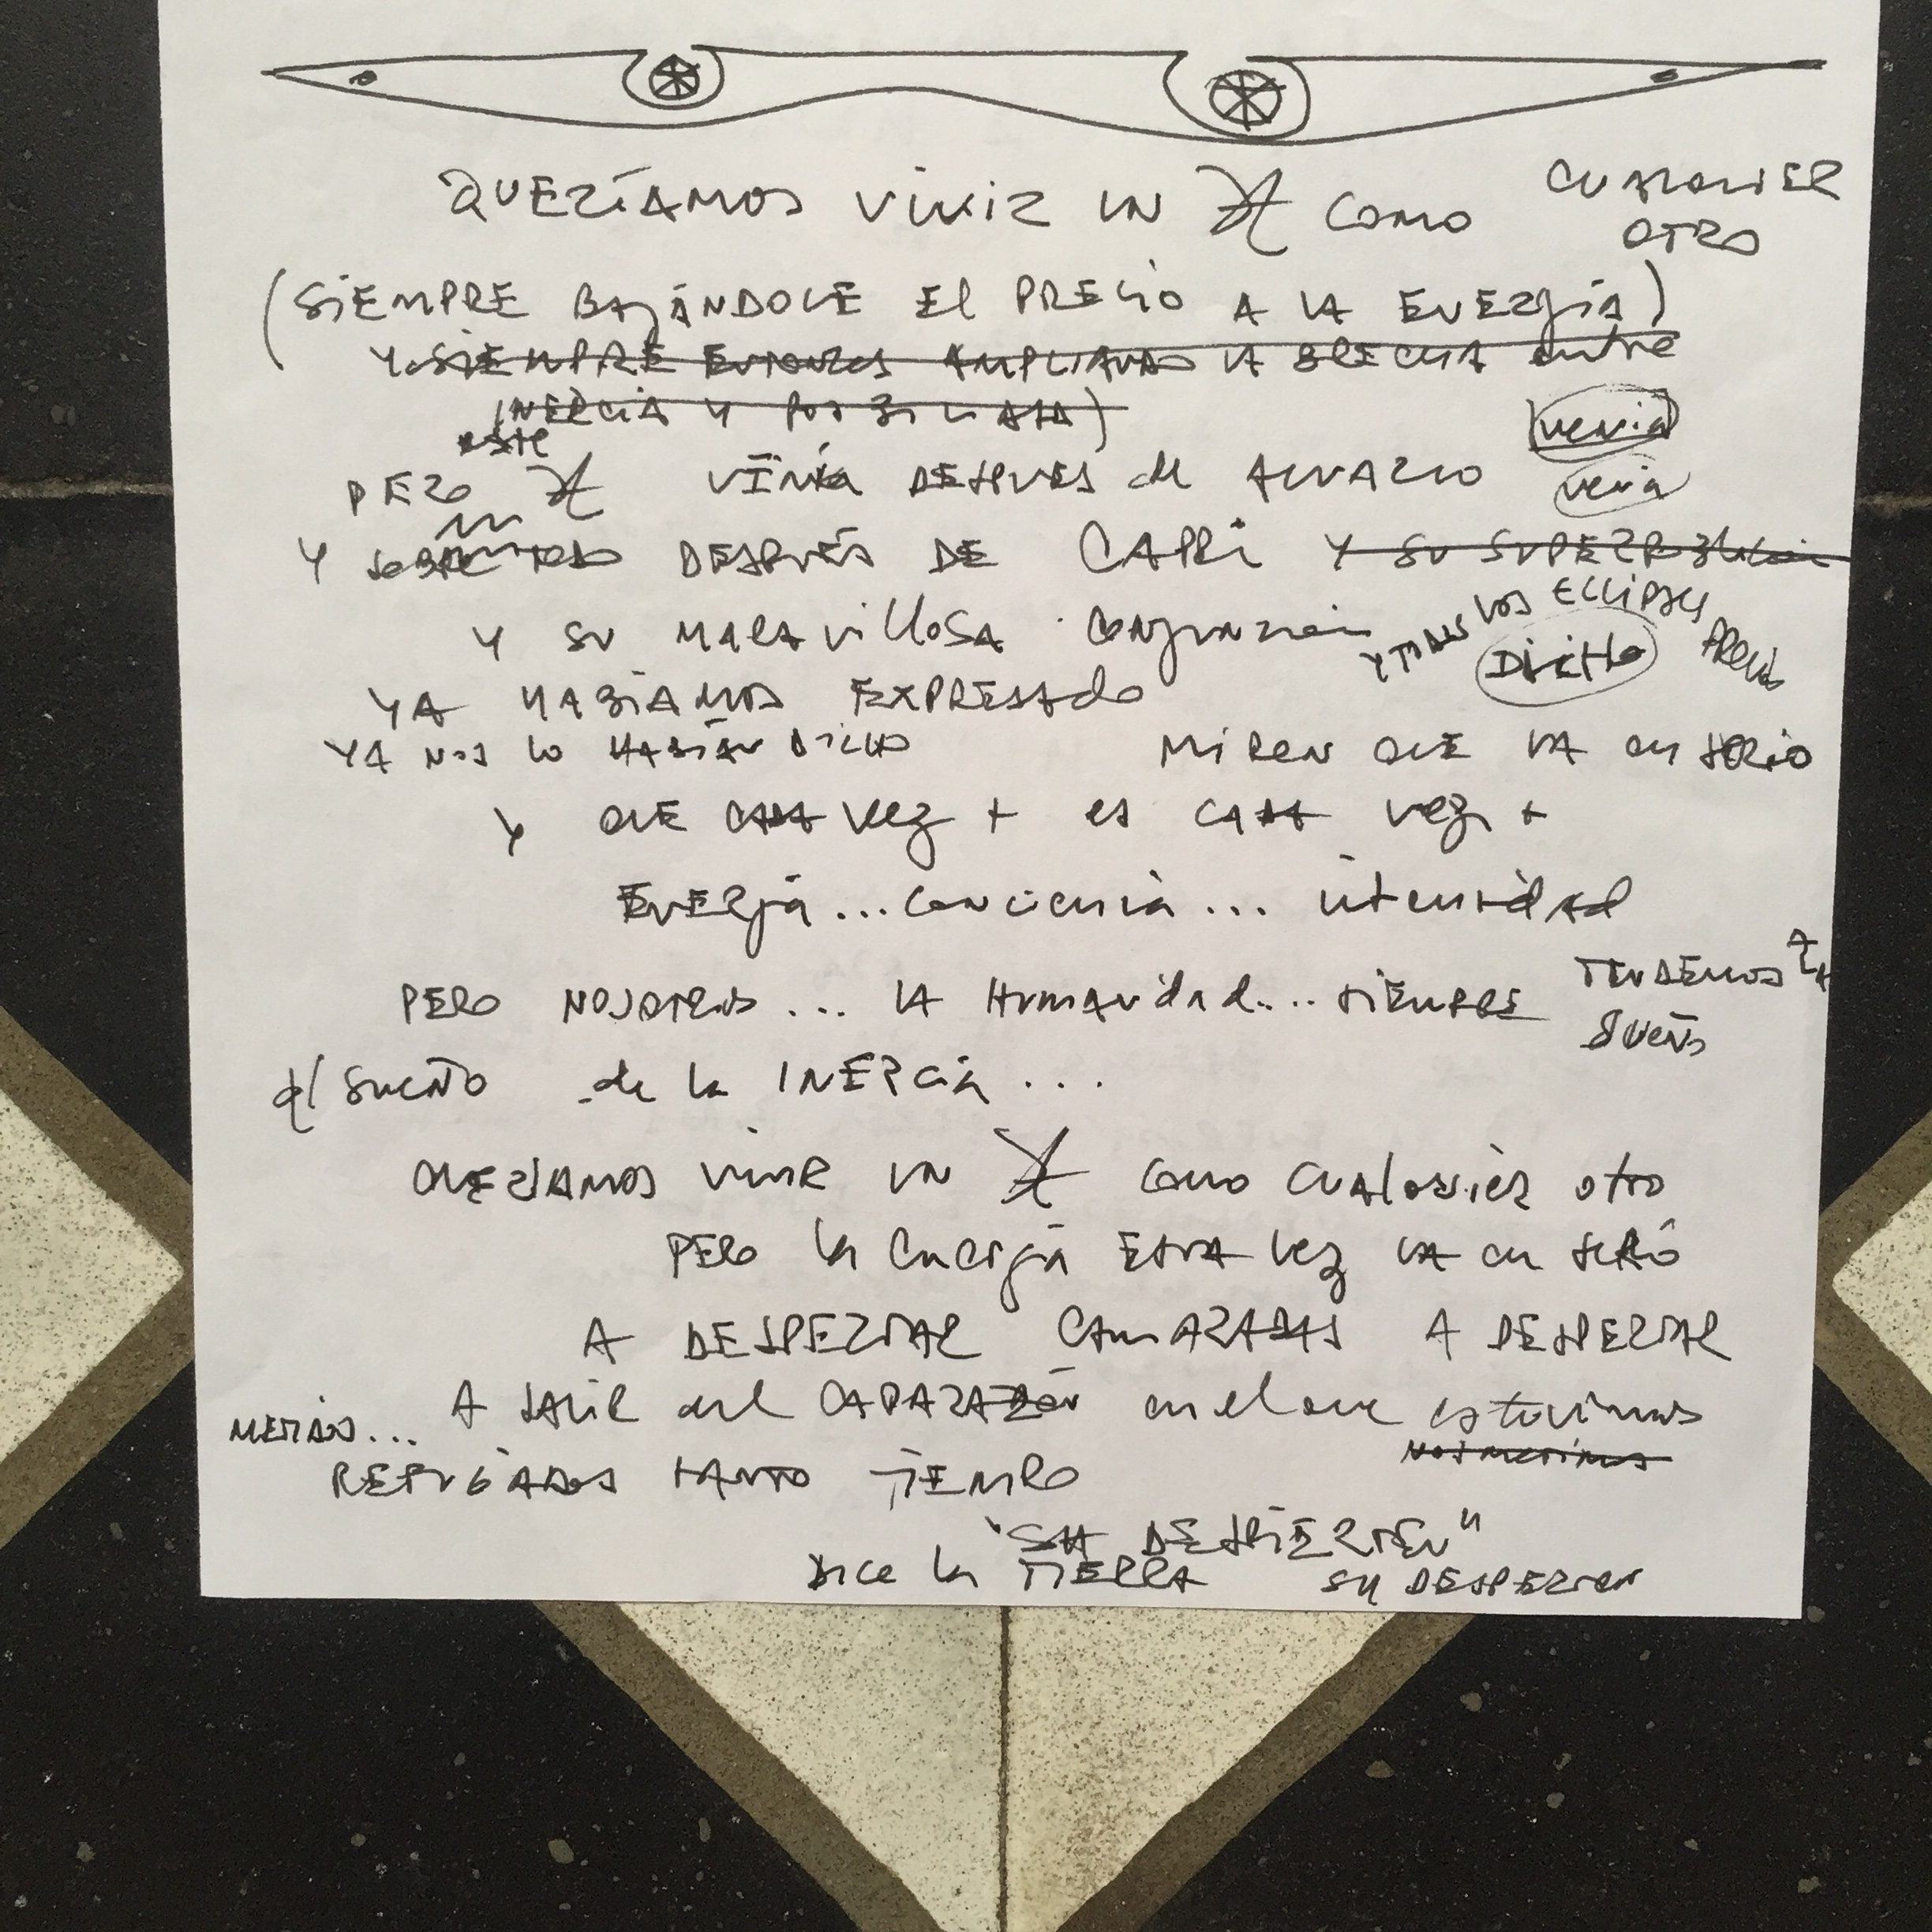 QUERÍAMOS VIVIR UN ♓ COMO CUALQUIER
OTRO
(SIEMPRE BAJÁNDOLE El PRECIO A LA ENERGÍA)
Y SIEMPRE ENTONCES AMPLIANDO LA BRECHA entre
INERCIA Y
este
venia
PERO ♓ VENÍA DESPUES de ACUARIO
venia
Y SOBRE TODO DESPUÉS DE CAPRI Y SU
Y SU MARAVILLOSA CONJUNCIÓN
Y TODOS LOS ECLIPSES PREVIOS
DICHO
YA HABIAMOS EXPRESADO
YA NOS LO HABÍAN DICHO MIREN QUE VA en SERIO
Y QUE CADA VEZ + es CADA VEZ +
ENERGÍA... conciencia... intensidad
PERO NOSOTROS... LA HUMANIDAD... SIEMPRE TENDEMOS A
SUEÑO
al SUEÑO de la INERCIA...
QUERIAMOS VIVIR UN ♓ COMO CUALQUIER otro
PERO la Energía ESTA VEZ VA en SERIO
A DESPERTAR CAMARADAS A DESPERTAR
METIDOS... A SALIR del CAPARAZÓN en el que estuvimos
REFUGIADOS TANTO TIEMPO
"SH DESPIERTEN"
DICE la TIERRA SH DESPIERTEN